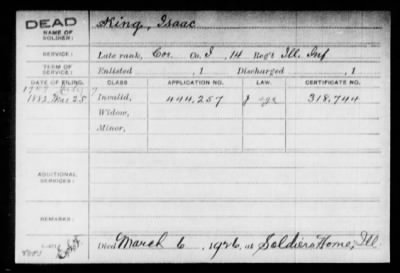 DEAD
NAME OF SOLDIER: King, Isaac
SERVICE: Late rank, Cor. Co. I, 14 Reg't Ill. Inf
TERM OF SERVICE: Enlisted , 1 Discharged , 1
DATE OF FILING. CLASS. APPLICATION NO. LAW. CERTIFICATE NO.
1882, Mar 25 Invalid, 444,257 318,744
Widow,
Minor,
ADDITIONAL SERVICES:
REMARKS:
Died March 6, 1926, at Soldiers Home, Ill